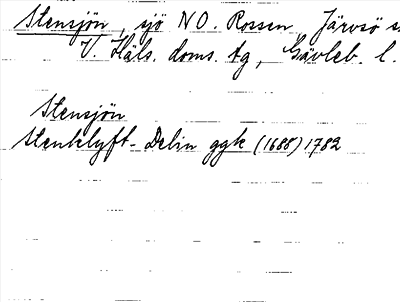 Stensjön, sjö NO. Rossen Järvsö s.
V. Häls. doms. tg, Gävleb. l.
Stensjön
Stenklyft- Delin ggk (1688) 1782